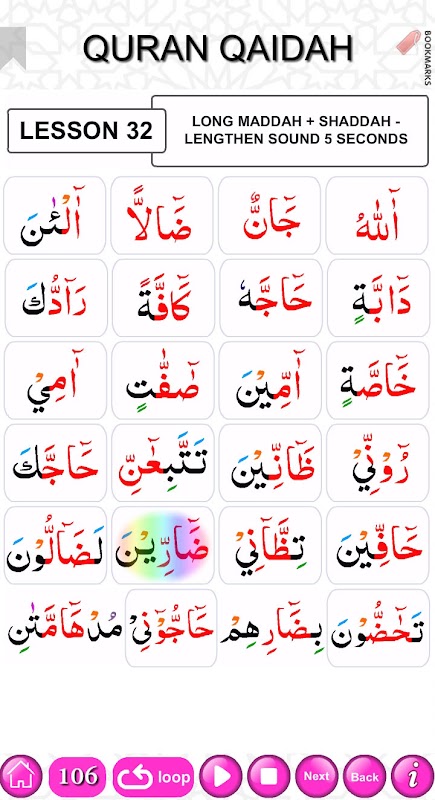 QURAN QAIDAH
BOOKMARKS
LESSON 32
LONG MADDAH + SHADDAH -
LENGTHEN SOUND 5 SECONDS
آٰللّٰهُ جَآنٌّ ضَآلًّا آٰلْـٰٔنَ
دَآبَّةٍ حَآجَّهٗ كَآفَّةً رَآدُّكَ
خَآصَّةً آٰمِّيْنَ صٰٓفّٰتٍ آٰمِيْ
رُوْٓنِّيْ ظَآنِّيْنَ تَتَّبِعٰٓنِّ حَآجَّكَ
حَآفِّيْنَ تِظَّآنِيْ ضَآرِيْنَ لَضَآلُّوْنَ
تَحٰٓضُّوْنَ بِضَآرِهِمْ حَآجُّوْنِيْ مُدْهَآمَّتٰنِ
106
loop
Next
Back
i